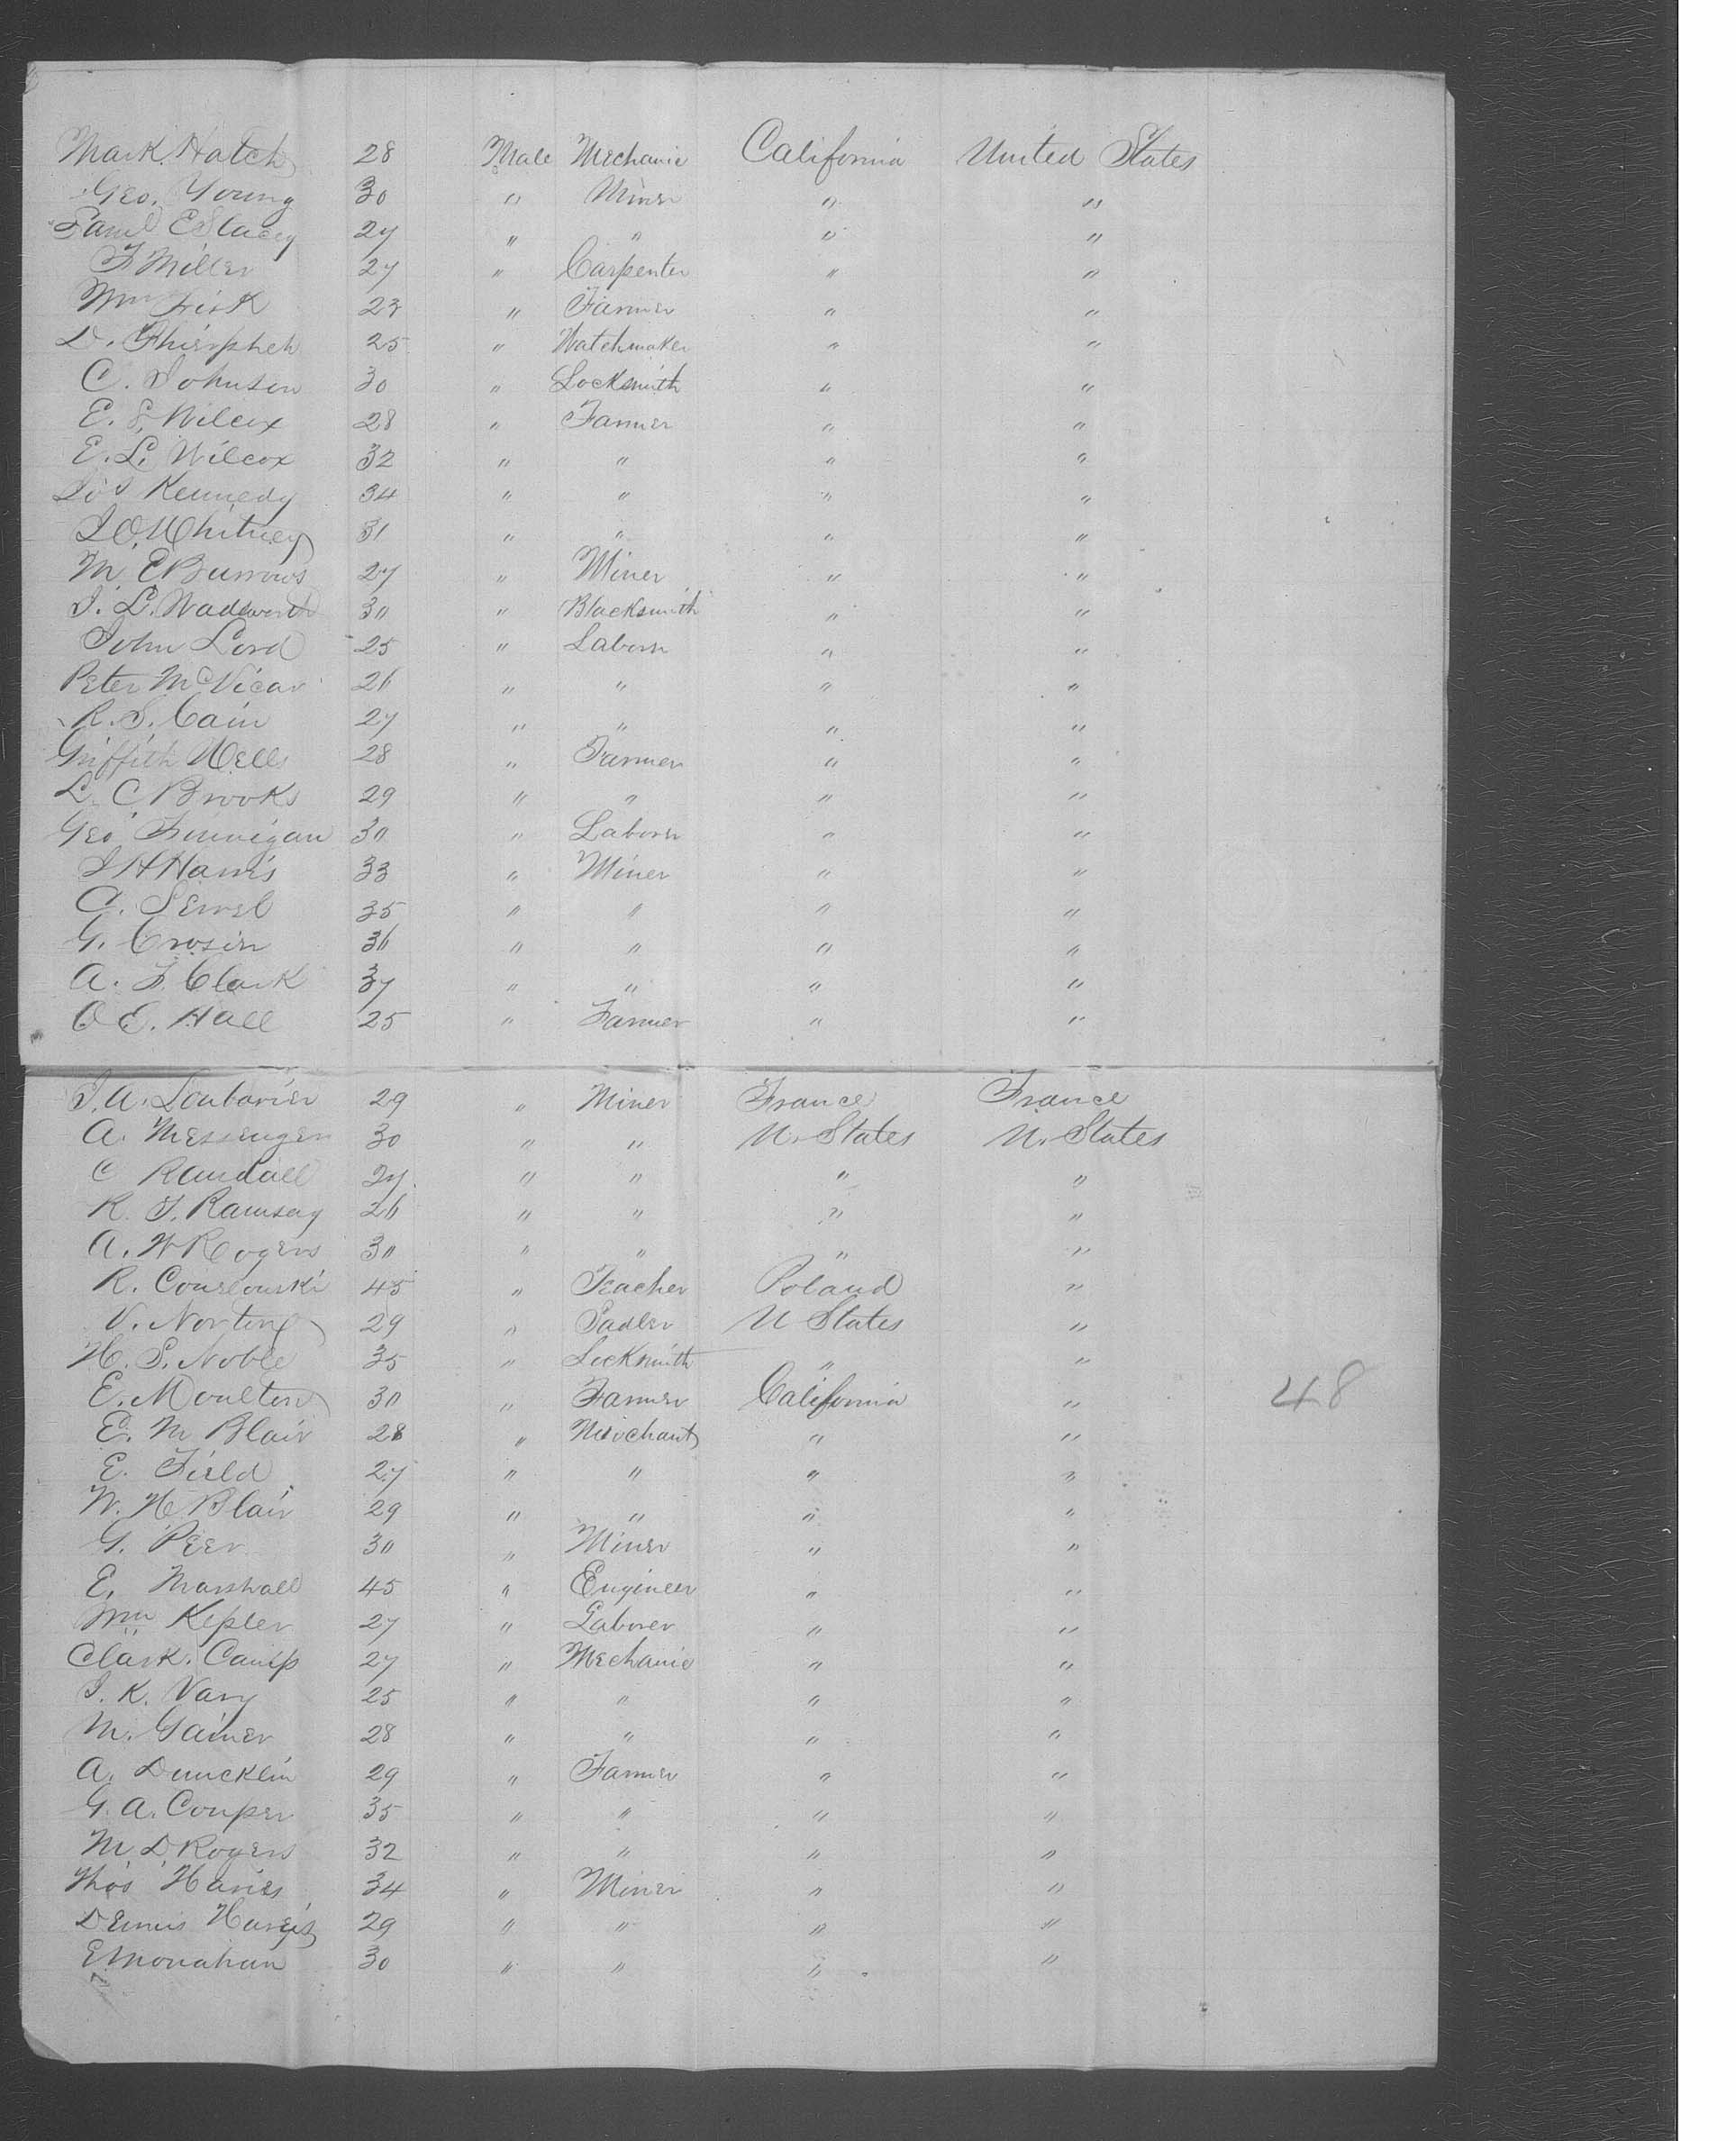 Mark Hatch 28 Male Mechanic California United States
Geo. Young 30 " Miner " "
Saml E Stacey 27 " " " "
F Miller 27 " Carpenter " "
Wm Fisk 23 " Farmer " "
D. 25 " Watchmaker " "
C. Johnson 30 " Locksmith " "
E. S. Wilcox 28 " Farmer " "
E. L. Wilcox 32 " " " "
Kennedy 34 " " " "
J O. Whitney 31 " " " "
M. E Burrows 27 " Miner " "
J. L. Wadsworth 30 " Blacksmith " "
John Lord 25 " Laborer " "
Peter McVicar 26 " " " "
R. S. Cain 27 " " " "
Griffith Wells 28 " Farmer " "
L. C Brooks 29 " " " "
Geo Finnigan 30 " Laborer " "
J H Harris 33 " Miner " "
A. 35 " " " "
G. Crosin 36 " " " "
A. F. Clark 37 " " " "
O E. Hall 25 " Farmer " "
J. A. Loubarier 29 " Miner France France
A. Messenger 30 " " U. States U. States
C Randall 27 " " " "
R. T. Ramsay 26 " " " "
A. W Rogers 30 " " " "
R. 45 " Teacher Poland "
V. Norting 29 " Sadler U States "
H. S. Noble 35 " Locksmith " "
E. Moulton 30 " Farmer California " 48
E. M Blair 28 " Merchant " "
E. Field 27 " " " "
W. H Blair 29 " " " "
G. Peer 30 " Miner " "
E. Marshall 45 " Engineer " "
Wm Kepler 27 " Laborer " "
Clark. Camp 27 " Mechanic " "
J. K. Vary 25 " " " "
M. Gainer 28 " " " "
A. Duncklin 29 " Farmer " "
G. A. Couper 35 " " " "
M. D Rogers 32 " " " "
Thos Harris 34 " Miner " "
Dennis Harris 29 " " " "
E Monahan 30 " " " "